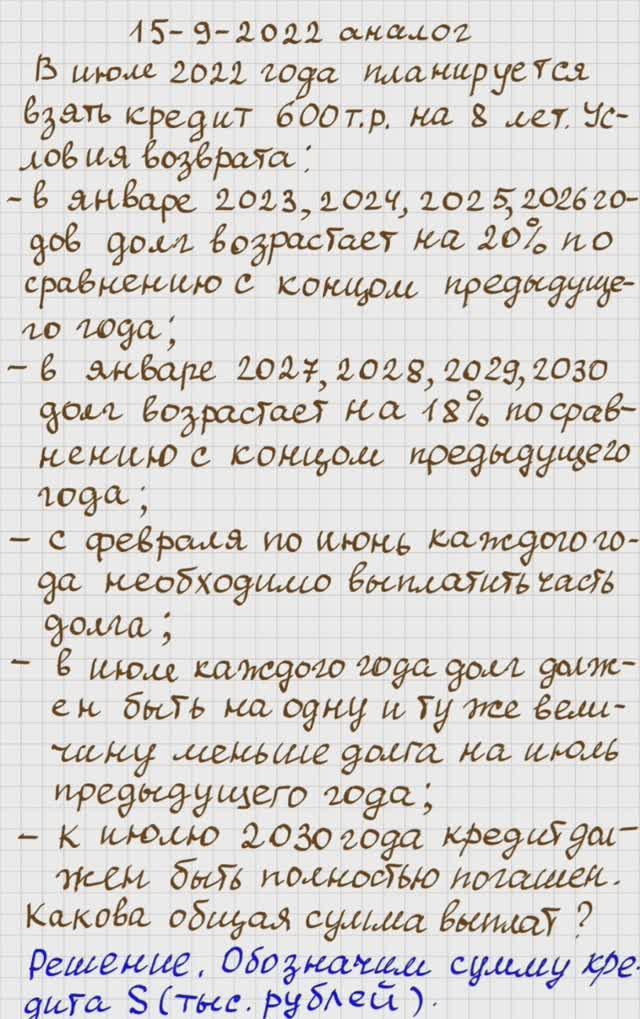 15-9-2022 аналог
В июле 2022 года планируется
взять кредит 600 т.р. на 8 лет. Ус-
ловия возврата:
- в январе 2023, 2024, 2025, 2026 го-
дов долг возрастает на 20% по
сравнению с концом предыдуще-
го года;
- в январе 2027, 2028, 2029, 2030
долг возрастает на 18% по срав-
нению с концом предыдущего
года;
- с февраля по июнь каждого го-
да необходимо выплатить часть
долга;
- в июле каждого года долг долж-
ен быть на одну и ту же вели-
чину меньше долга на июль
предыдущего года;
- к июлю 2030 года кредит дол-
жен быть полностью погашен.
Какова общая сумма выплат?
Решение. Обозначим сумму кре-
дита S (тыс. рублей).